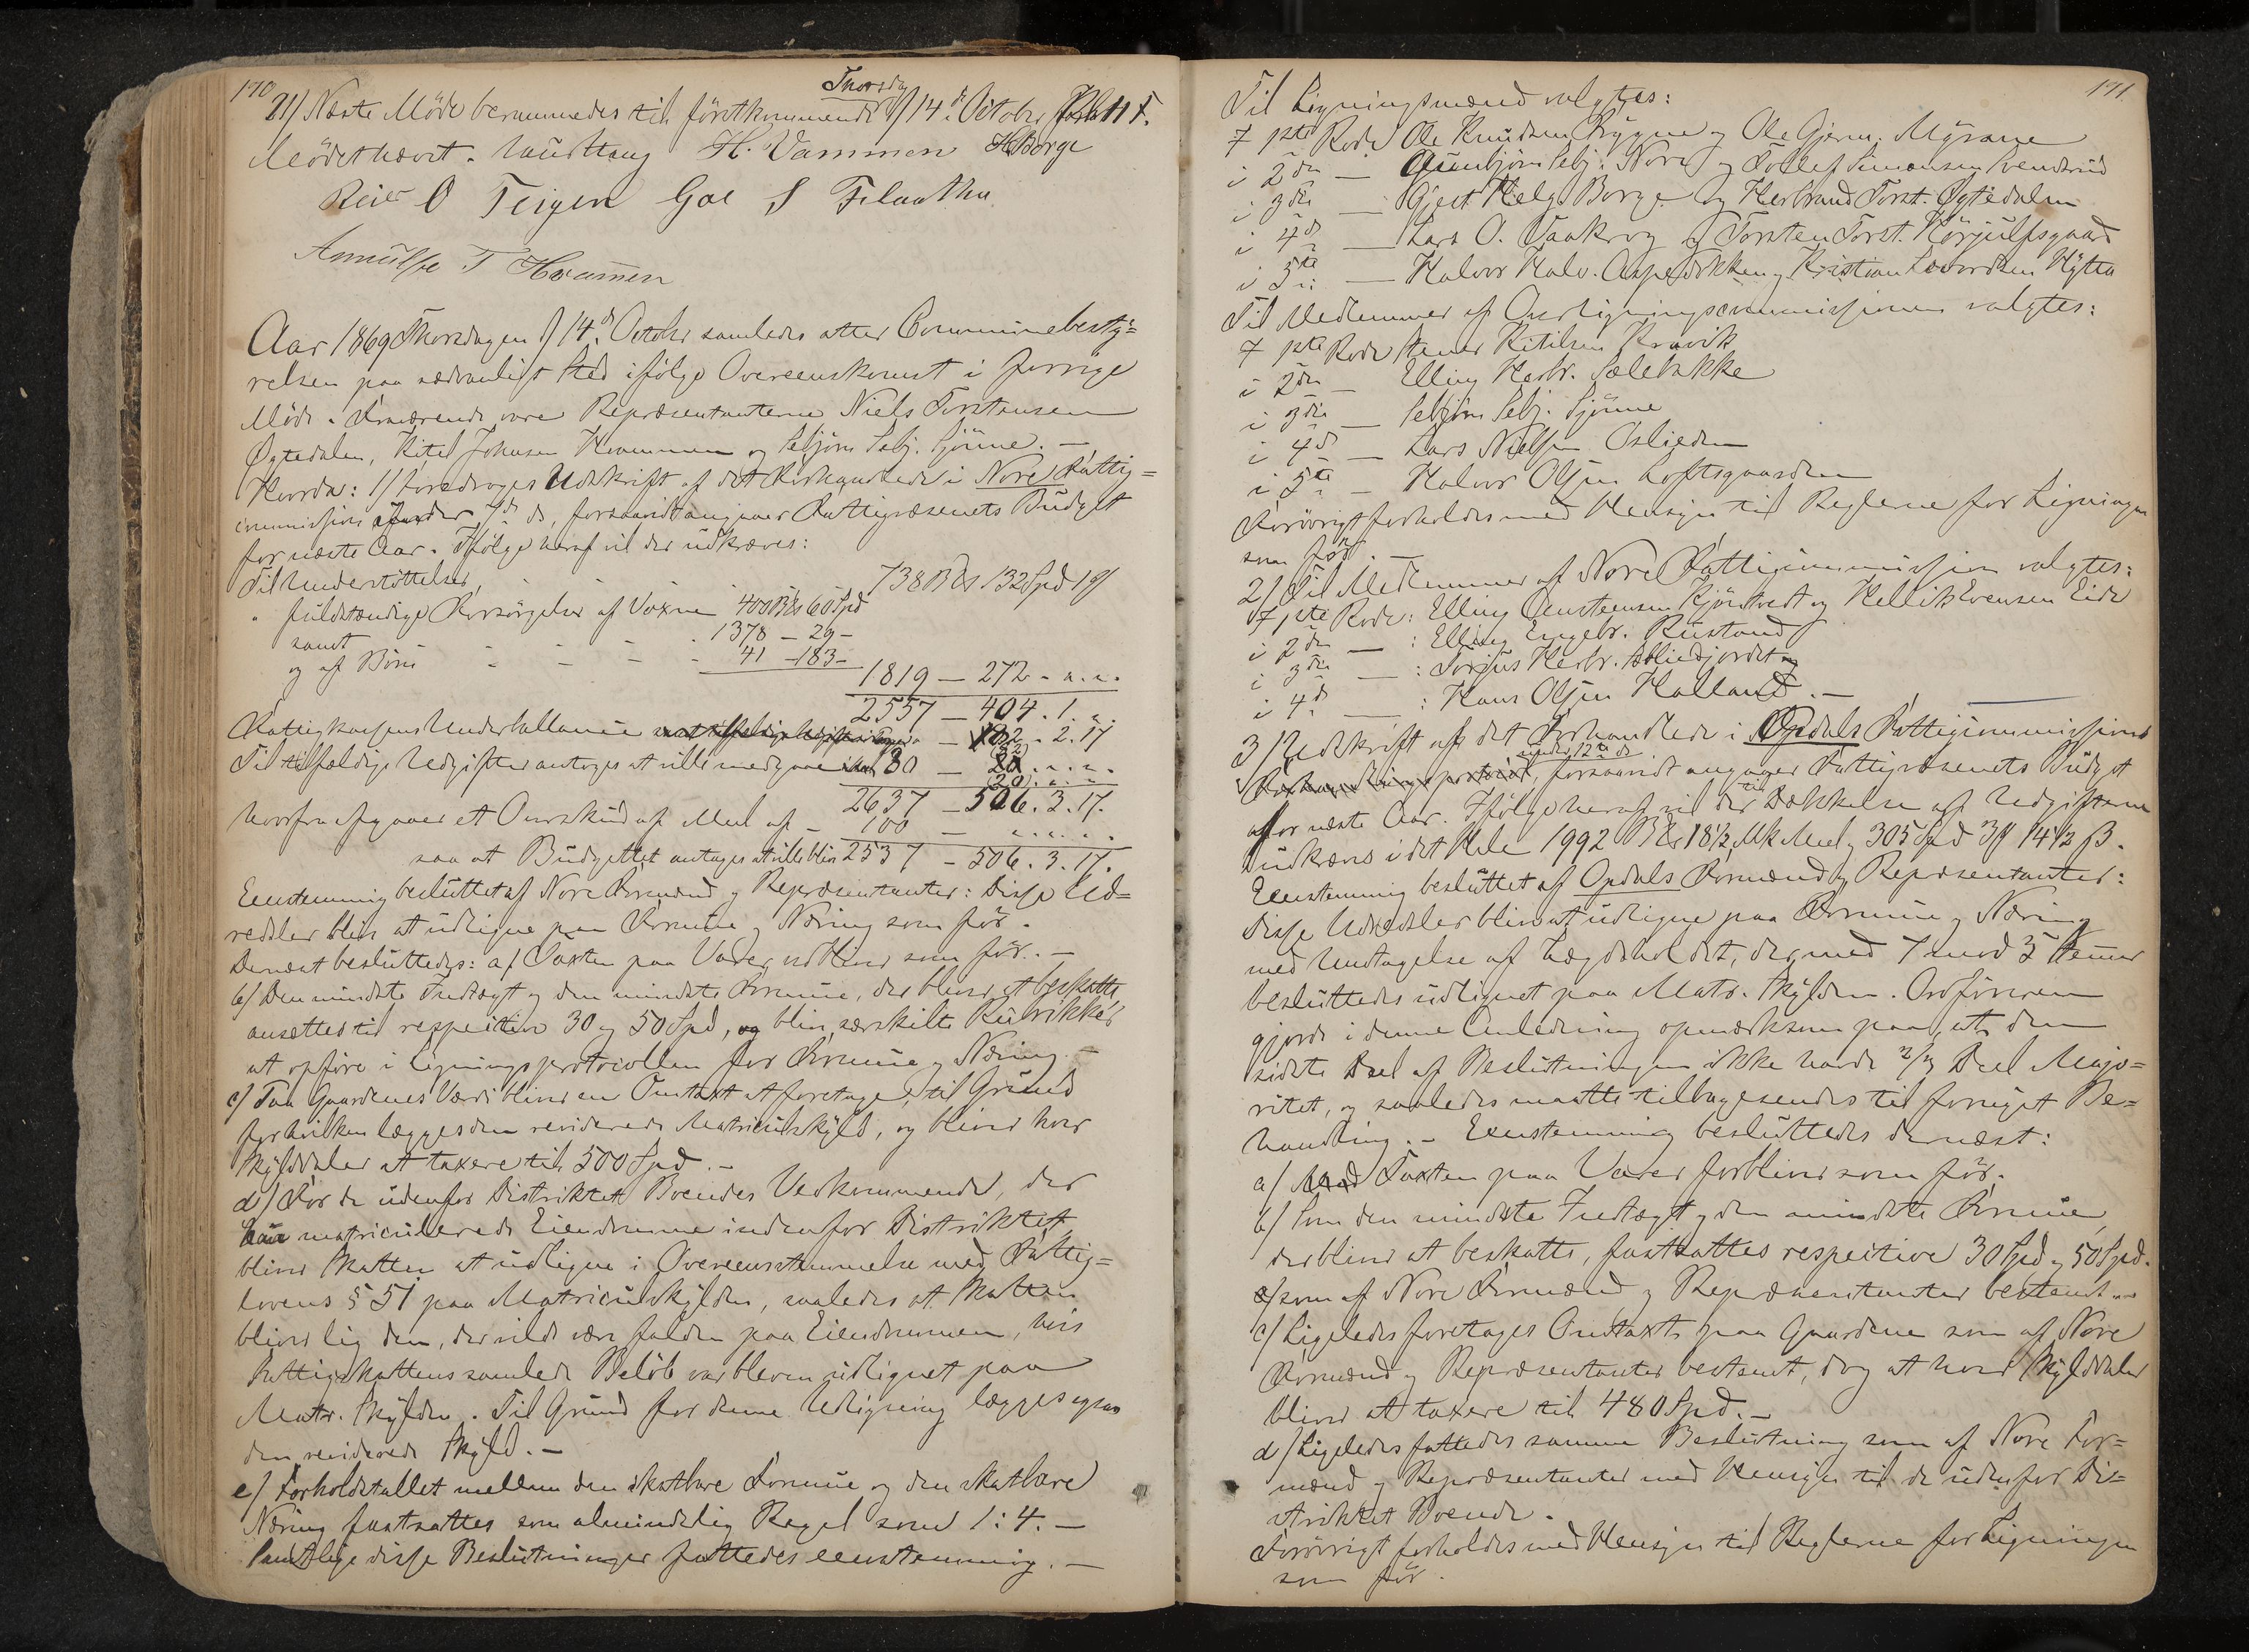 170
21/ Næste Möde berammedes til förstkommende Thorsdag d 14de October Kl. 11 F.
Mödet hævet. H. Vammen HBorge
O Teigen Goe S
T
Aar 1869 Thorsdagen d 14de Octobr samledes atter Communebesty=
relsen paa sædvanligt Sted ifölge Overeenskomst i forrige
Möde. Nærværende vare Repræsentanterne Niels Torstensen
Øgtedalen, Kittel Johnsen Kravmmen og Sebjörn Sebj. Sjönne. —
Hvorda: 1/ foredroges Udskrift af det Forhandlede i Nore Fattig=
commission under 7de ds, forsaavidt angaaer Fattigvæsenets Budget
for næste Aar. Ifölge heraf vil der udkræves:
Til Understöttelser 738 132 Spd 1
" fuldstændige Forsörgelser af Voxne 400 60 Spd
samt 1378 – 29 –
og af Börn 41 – 183 –
1819 – 272 – " . " .
2557 – 404 . 1 . "
Fattigkassens Underballance – 82 . 2 . 17
Til tilfældige Udgifter antages at ville medgaae 80 – 20 . " . "
2637 – 506 . 3 . 17.
hvorfra afgaaer et Overskud af Meel af – 100 – " . " . "
saa at Budgettet antages at ville blive 2537 – 506 . 3 . 17.
Eenstemmig besluttet af Nore Formænd og Repræsentanter: Disse Ud=
redsler blive at udligne paa Formue og Næring som för.
Dernæst besluttedes: a/ Taxten paa Varer vedbliver som för. —
b/ Den mindste Indtægt og den mindste Formue, der bliver at beskatte
ansættes til respective 30 og 50 Spd, og bliver særskilte Rubrikker
at opföre i Ligningsprotocollen for Formue og Næring. —
c/ Paa Gaardenes Værdi bliver en Omtaxt at foretage, til Grund
for hvilken lægges den reviderede Matriculskyld, og bliver hver
Skylddaler at taxere til 500 Spd. —
d/ For de udenfor Distriktet Boendes Vedkommende, der
har matriculerede Eiendomme indenfor Distriktet
bliver Skatten at udligne i Overeensstemmelse med Fattig=
lovens § 51 paa Matriculskylden, saaledes at Skatten
bliver lig den, der vilde være falden paa Eiendommen, hvis
Fattigskattens samlede Belöb var bleven udlignet paa
Matr. Skylden. Til Grund for denne Udligning lægges ogsaa
den reviderede Skyld. —
e/ Forholdstallet mellem den skatbare Formue og den skatbare
Næring fastsattes som almindelig Regel som 1 : 4. —
Samtlige disse Beslutninger fattedes eenstemmig. —
171
Til Ligningsmænd valgtes:
I 1ste Rode Ole Knudsen Bryggne og Ole Gjerm. Myrane
i 2den — Gunbjörn Sebj. Nore og Tollef Simonsen
i 3die — Gjest Helg. Borge og Herbrand Torst. Øgtedalen
i 4de — Lars O. Taakrog og Torsten Torst. Körjulfsgaard
i 5te — Halvor Halv. og Kristian Levordsen Hytta
Til Medlemmer af Overligningscommissionen valgtes:
I 1ste Rode Stener Kittilsen Kravik
i 2den — Elling Herbr. Sælebakke
i 3die — Sebjörn Sebj. Sjönne
i 4de — Lars Nielsen Oslieden
i 5te — Halvor Olsen Loftsgaarden
Forövrigt forholdes med Hensyn til Reglerne for Ligningen
som för. —
2/ Til Medlemmer af Nore Fattigcommission valgtes:
I 1ste Rode: Elling Amsteensen Kjönstvedt og Hellik Evensen Eide
i 2den — : Elling Engebr. Rustand
i 3die — : Torjus Herbr.
i 4de — : Hans Olsen Halland. —
3/ Udskrift af det Forhandlede i Opdals Fattigcommissions
under 12te ds
forsaavidt angaaer Fattigvæsenets Budget
for næste Aar. Ifölge heraf vil der til Dækkelse af Udgifterne
udkræves i det Hele 1992 18½ Mk Meel og 305 Spd 3 14½ ß.
Eenstemmig besluttet af Opdals Formænd og Repræsentanter:
Disse Udredsler bliver at udligne paa Formue og Næring
med Undtagelse af Lægdeholdet, der med 7 mod 5 Stemmer
besluttedes udlignet paa Matr. Skylden. Ordföreren
gjorde i denne Anledning opmærksom paa, at den
sidste Deel af Beslutningen ikke havde 2/3 Deel Majo=
ritet, og saaledes maatte tilbagesendes til fornyet Be=
handling. – Eenstemmig besluttedes dernæst:
a/ Taxten paa Varer forbliver som för.
b/ Som den mindste Indtægt og den mindste Formue,
der bliver at beskatte, fastsattes respective 30 Spd og 50 Spd.
som af Nore Formænd og Repræsentanter bestemt
c/ Ligeledes foretages Omtaxt paa Gaardene som af Nore
Formænd og Repræsentanter bestemt, dog at hver Skylddaler
bliver at taxere til 480 Spd. —
d/ Ligeledes fattedes samme Beslutning som af Nore For=
mænd og Repræsentanter med Hensyn til de udenfor Di=
striktet Boende.
Forövrigt forholdes med Hensyn til Reglerne for Ligningen
som för.